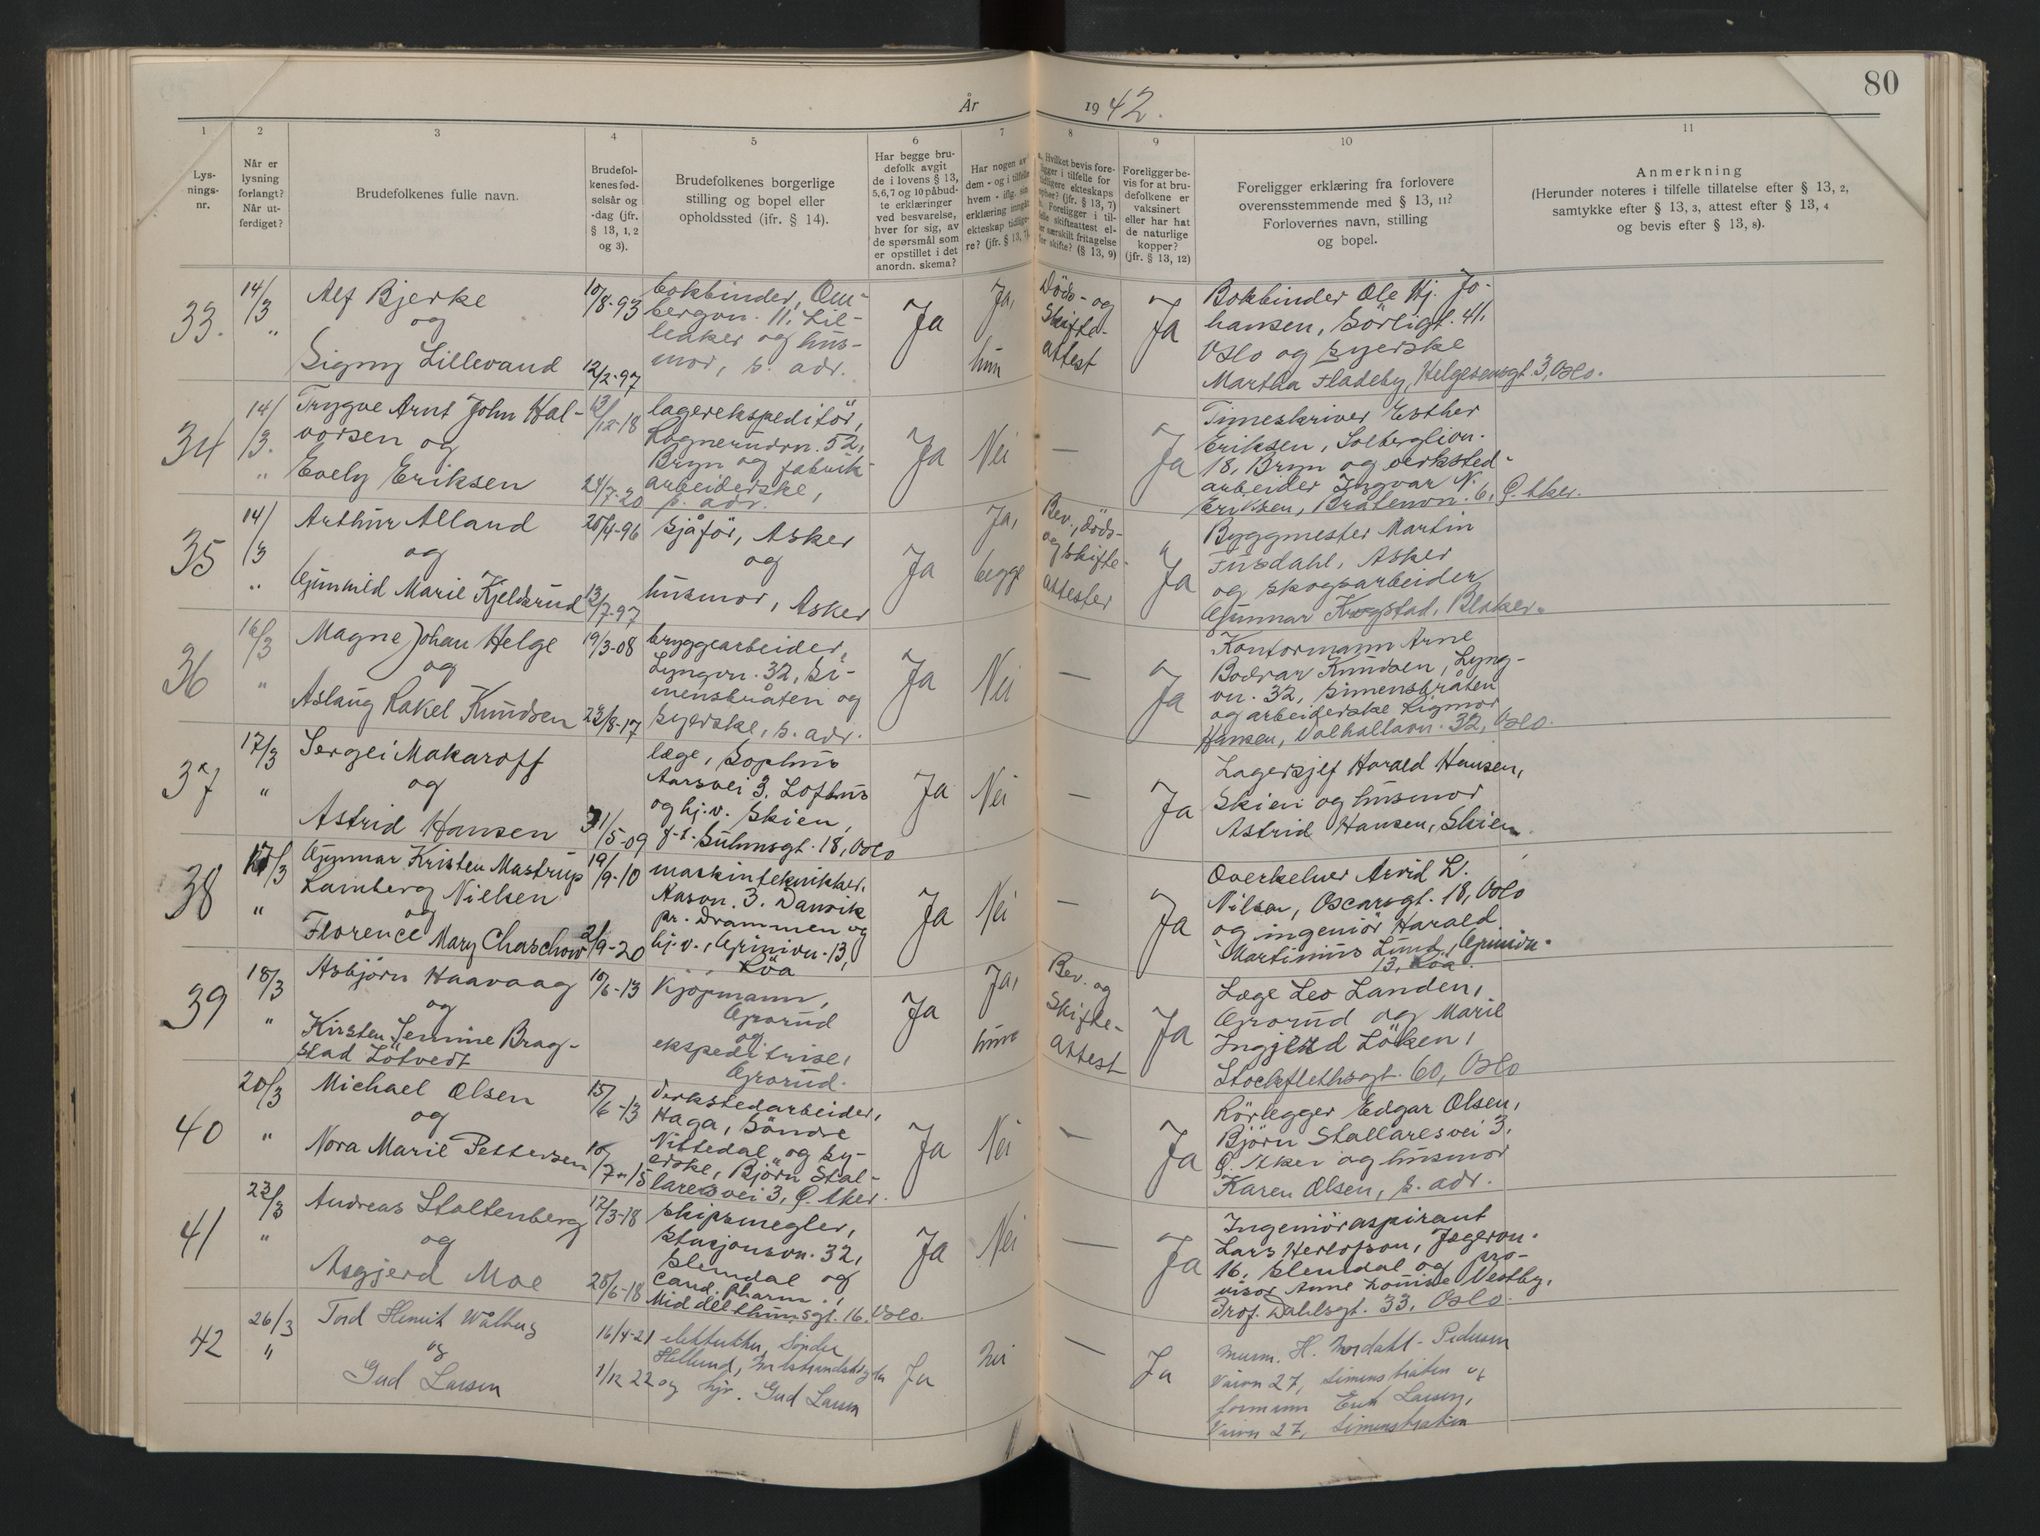 80
År 1942.
1 2 3 4 5 6 7 8 9 10 11
Lys-
nings-
nr.
Når er
lysning
forlangt?
Når ut-
ferdiget?
Brudefolkenes fulle navn.
Brudefol-
kenes fød-
selsår og
-dag (jfr.
§ 13, 1, 2
og 3).
Brudefolkenes borgerlige
stilling og bopel eller
opholdssted (ifr. § 14).
Har begge bru-
defolk avgit
de i lovens § 13,
5, 6, 7 og 10 påbud-
te erklæringer
ved besvarelse,
hver for sig, av
de spørsmål som
er opstillet i det
anordn. skema?
Har nogen av
dem - og i tilfelle
hvem - iflg. sin
erklæring inngått
ekteskap tidlige-
re? (jfr. § 13, 7).
a. Hvilket bevis fore-
ligger i tilfelle for
tidligere ekteskaps
ophør? (jfr. § 13, 7)
b. Foreligger i til-
felle skifteattest el-
ler særskilt fritagelse
for skifte? (§ 13, 9)
Foreligger be-
vis for at bru-
defolkene er
vaksinert
eller har hat
de naturlige
kopper?
(jfr. § 13, 12)
Foreligger erklæring fra forlovere
overensstemmende med § 13, 11?
Forlovernes navn, stilling
og bopel.
Anmerkning
(Herunder noteres i tilfelle tillatelse efter § 13, 2,
samtykke efter § 13, 3, attest efter § 13, 4
og bevis efter § 13, 8).
33.
14/3
"
Alf Bjerke
og
Signy Lillevand
10/8-93
12/2-97
bokbinder, Om-
bergvn. 11, Lil-
leaker og hus-
mor, s. adr.
Ja
Ja,
hun
Döds- og
skifte-
attest
Ja
Bokbinder Ole Hj. Jo-
hansen, Sörligt. 41,
Oslo og syerske
Martha Fladeby, Helgesensgt. 3, Oslo.
34
14/3.
"
Trygve Arnt John Hal-
vorsen og
Evely Eriksen
13/12-18
24/7-20
lagerekspeditör,
Rognerudvn. 52,
Bryn og fabrik-
arbeiderske,
s. adr.
Ja
Nei
—
Ja
Timeskriver Esther
Eriksen, Solberglivn.
18, Bryn og verksted-
arbeider Ingvar N.
Eriksen, Bråtenvn. 6, Ö. Aker.
35
14/3
"
Arthur Alland
og
Gunnild Marie Kjeldsrud
25/4-96
13/7-97
sjåför, Asker
og
husmor, Asker
Ja
Ja,
begge
Bev., döds-
og skifte-
attester
Ja
Byggmester Martin
Fusdahl, Asker
og skogsarbeider
Gunnar Krogstad, Blaker.
36
16/3
"
Magne Johan Helge
og
Aslaug Rakel Knudsen
19/3-08
23/8-17
bryggearbeider,
Lyngvn. 32, Si-
mensbråten og
syerske, s. adr.
Ja
Nei
—
Ja
Kontormann Arne
Bodvar Knudsen, Lyng-
vn. 32, Simensbråten
og arbeiderske Rigmor
Hansen, Valhallavn. 32, Oslo.
37
17/3
"
Sergei Makaroff
og
Astrid Hansen
31/5-09
læge, Sophus
Aarsvei 3, Lofthus
og hj.v. Skien,
f.t. Suhmsgt. 18, Oslo
Ja
Nei
—
Ja
Lagersjef Harald Hansen,
Skien og husmor
Astrid Hansen, Skien.
38
17/3
"
Gunnar Kristen Mastrup
Lamberg Nielsen
og
Florence Mary Chaschow
19/9-10
2/9-20
maskintekniker,
Aasvn. 3, Danvik
pr. Drammen og
hj.v., Grinivn. 13,
Röa
Ja
Nei
—
Ja
Overkelner Arvid L.
Nilsen, Oscarsgt. 18, Oslo
og ingeniör Harald
Martinius Lund, Grinivn.
13, Röa.
39
18/3
"
Asbjørn Haavaag
og
Kirsten Jennine Brag-
stad Lötvedt
10/6-13
Kjöpmann,
Grorud
og
ekspeditrise,
Grorud.
Ja
Ja,
hun
Bev. og
skifte-
attest
Ja
Læge Leo Landen,
Grorud og Marie
Ingjerd Löken,
Stockflethsgt. 60, Oslo
40
20/3
"
Michael Olsen
og
Nora Marie Pettersen
15/6-13
10/7-15
Verkstedarbeider,
Haga, Söndre
Nittedal og sy-
erske, Björn Stal-
laresvei 3, Ö. Aker.
Ja
Nei
—
Ja
Rörlegger Edgar Olsen,
Björn Stallaresvei 3,
Ö. Aker og husmor
Karen Olsen, s. adr.
41
23/3
"
Andreas Stoltenberg
og
Asgjerd Moe
17/3-18
25/6-18
skipsmegler,
Stasjonsvn. 32,
Slemdal og
cand. pharm.,
Middelthunsgt. 16, Oslo.
Ja
Nei
—
Ja
Ingeniöraspirant
Lars Herlofson, Jegervn.
16, Slemdal og pro-
visor Anne Louise Vestby,
Prof. Dahlsgt. 33, Oslo.
42
26/3
"
Tord Henrit Walberg
og
Gud Larsen
16/4-21
1/12 22
elektriker, Sönder
og hjv. Gud Larsen
Ja
nei
—
Ja
Murm. H. Nordahl-Pedersen
27, Simensbråten og
formann Erik Larsen,
27, Simensbråten